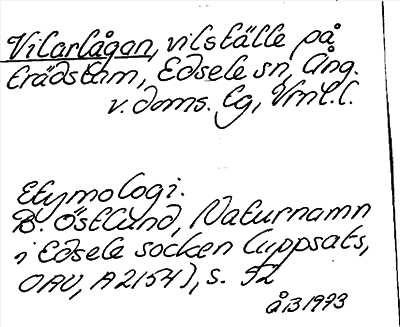 Vilarlågan, vilställe på
trädstam, Edsele sn, Ång.
v. doms. tg, Vrnl.l.
Etymologi.
B. Östlund, Naturnamn
i Edsele socken (uppsats,
OAU, A2154), s. 52
ÅB 1973